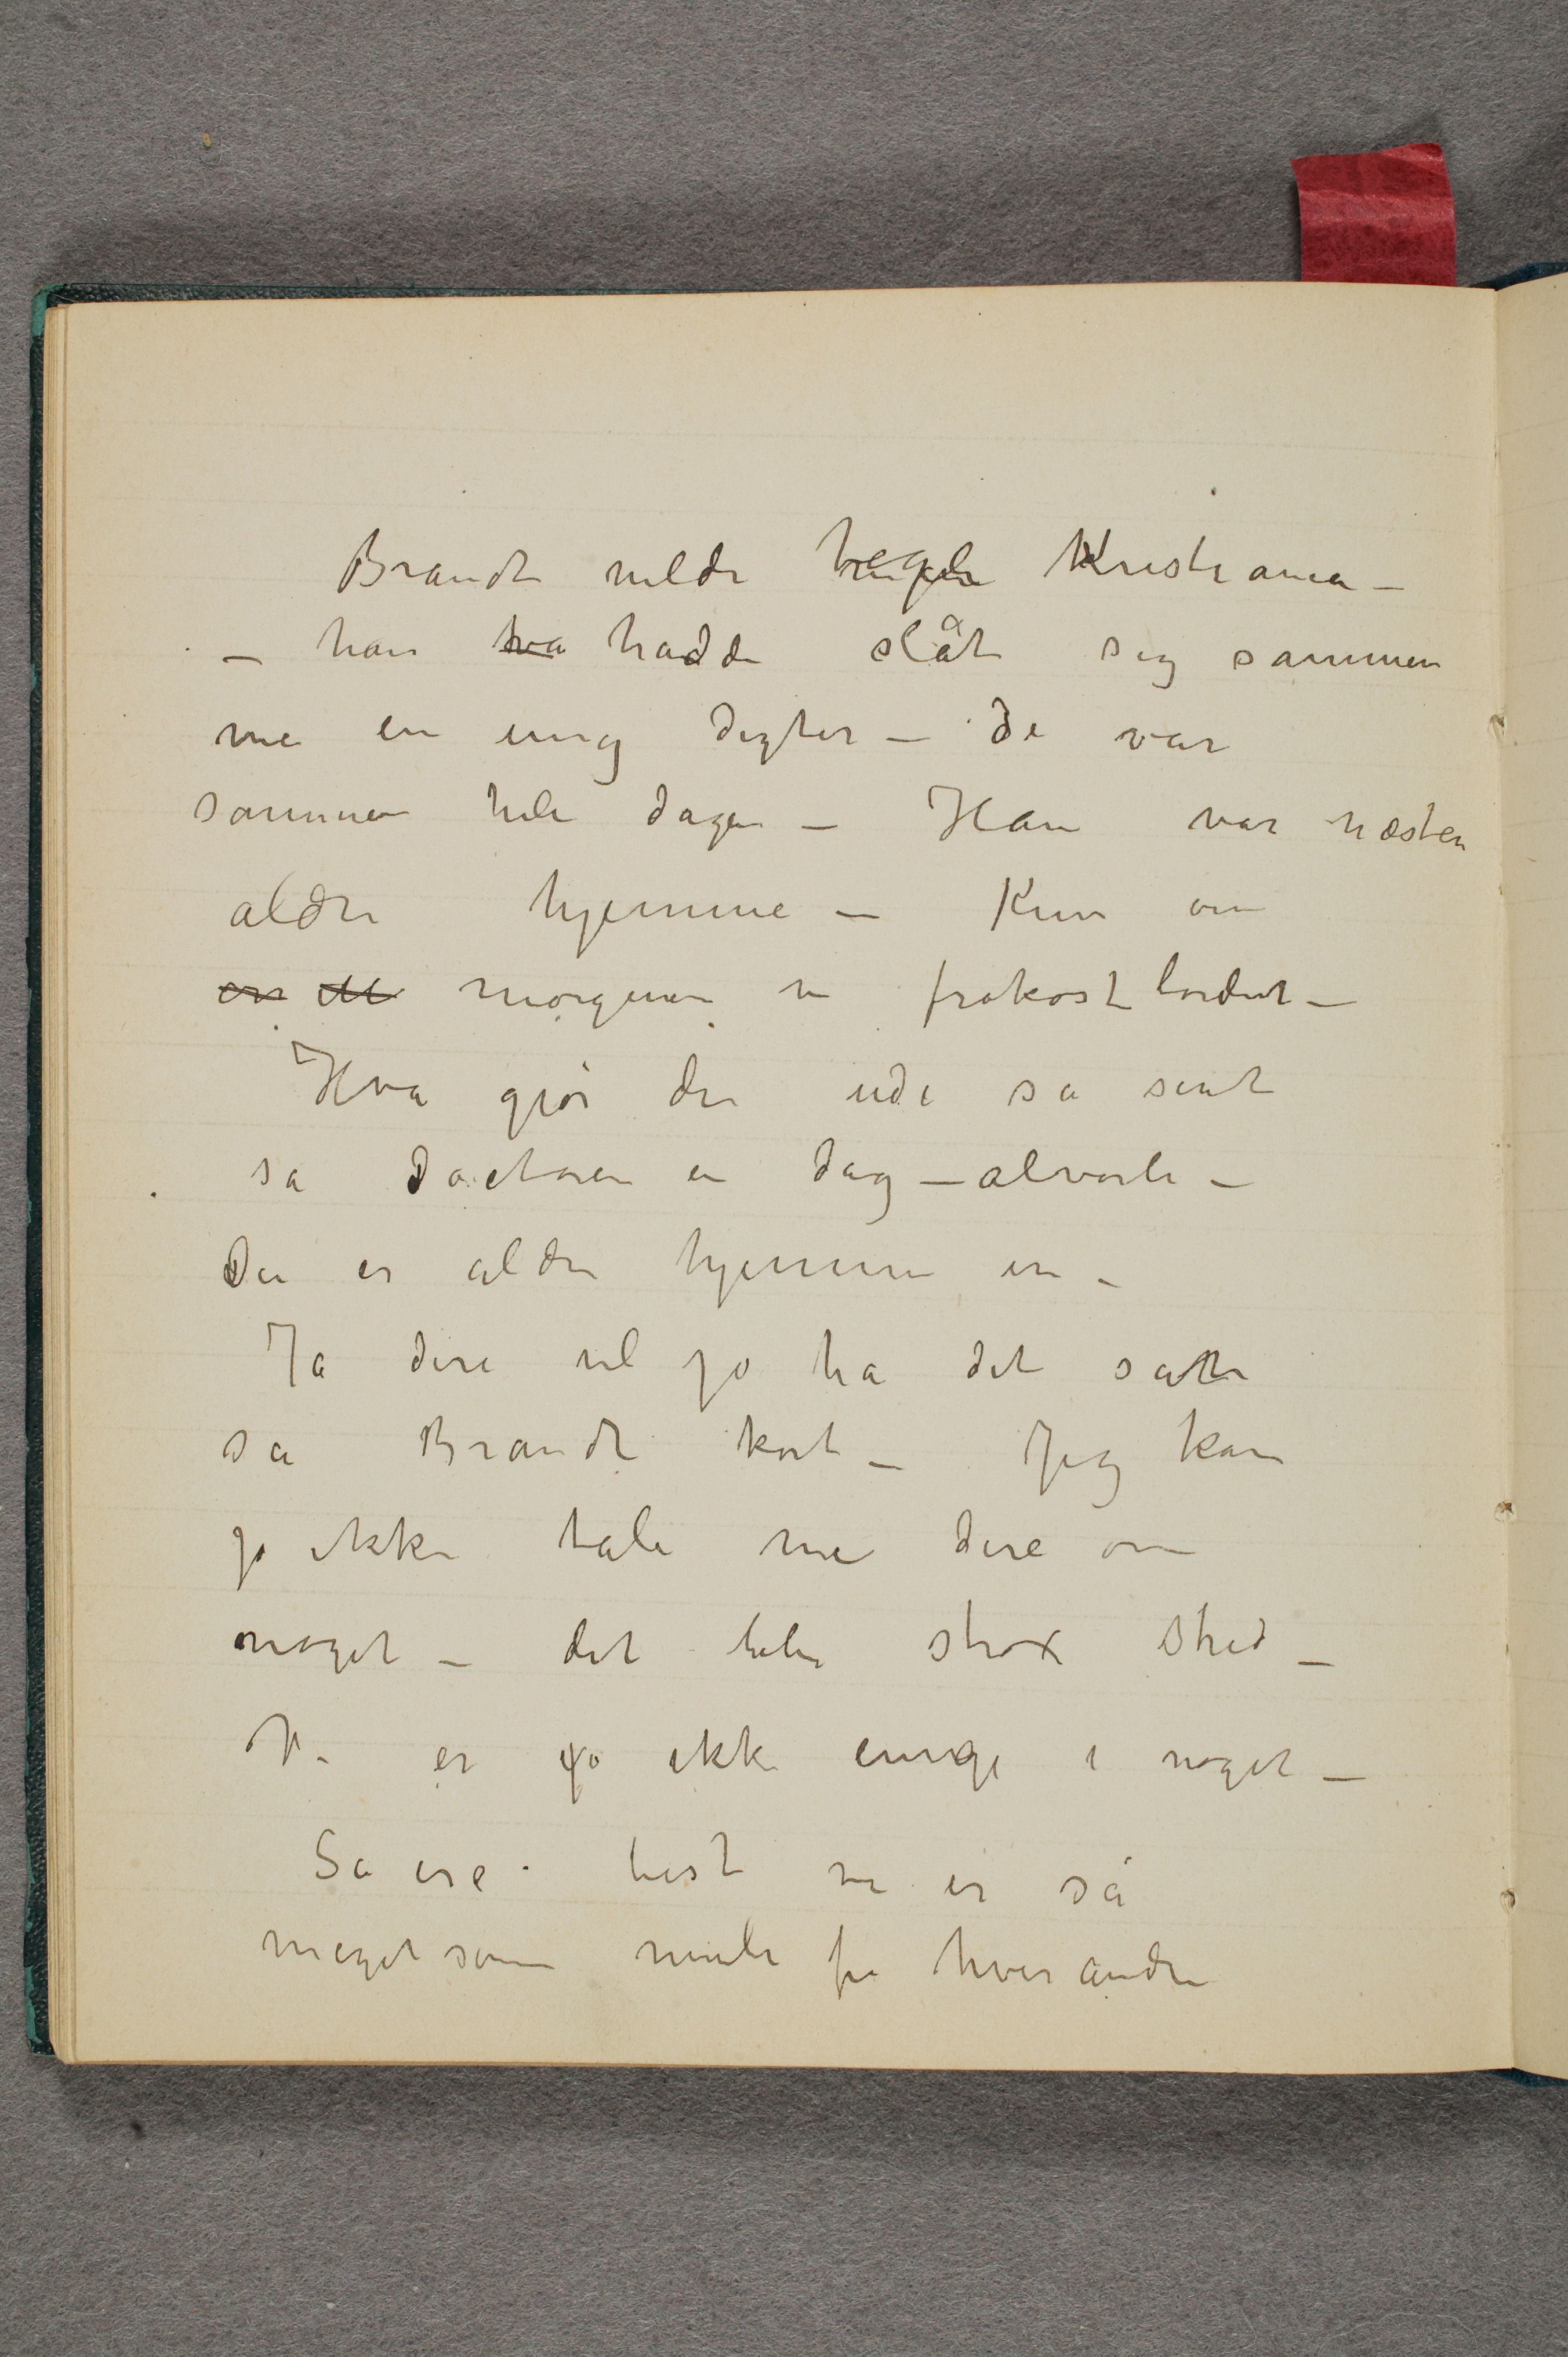 Brandt vilde Kristiania –
– han hva hadde slåt sig sammen
me en ung digter – de var
sammen hele dagen – Han var næsten
aldri hjemme – Kun om
en morgenen ve frokostbordet –
Hva gjør du ude så sent
sa Doctoren en dag – alvorli –
Du er aldri hjemme en –
Ja dere vil jo ha det sån
sa Brandt kort – Jeg kan
jo ikke tale me dere om
noget – det blir strax strid –
Vi er jo ikke enige i noget –
Så ere best vi er så
meget som muli fra hverandre